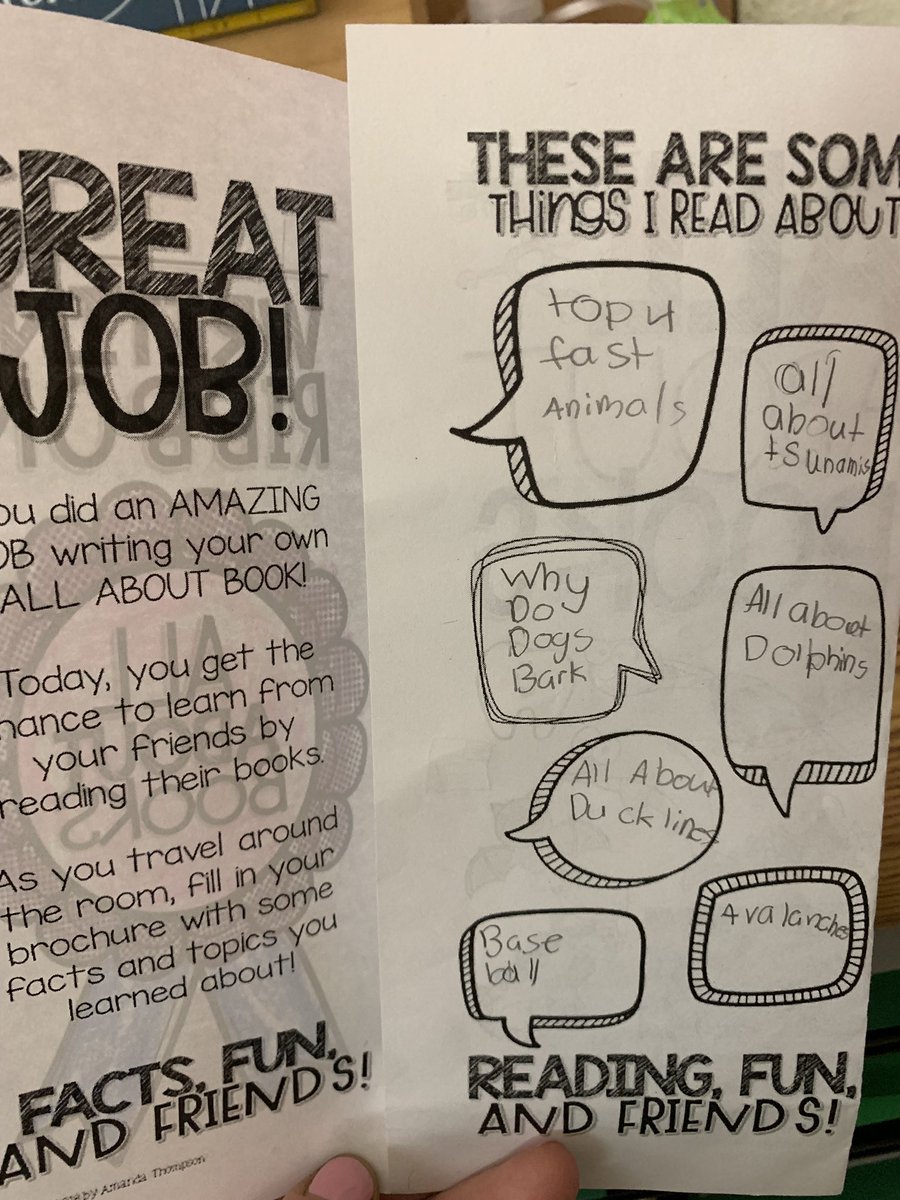 GREAT
JOB!
You did an AMAZING
JOB writing your own
ALL ABOUT BOOK!
Today, you get the
chance to learn from
your friends by
reading their books.
As you travel around
the room, fill in your
brochure with some
facts and topics you
learned about!
FACTS, FUN,
AND FRIENDS!
by Amanda Thompson
THESE ARE SOM
THINGS I READ ABOUT
top 4
fast
Animals
all
about
tsunamis
Why
Do
Dogs
Bark
All about
Dolphins
All About
Duck lings
Avalanches
Base
ball
READING, FUN,
AND FRIENDS!